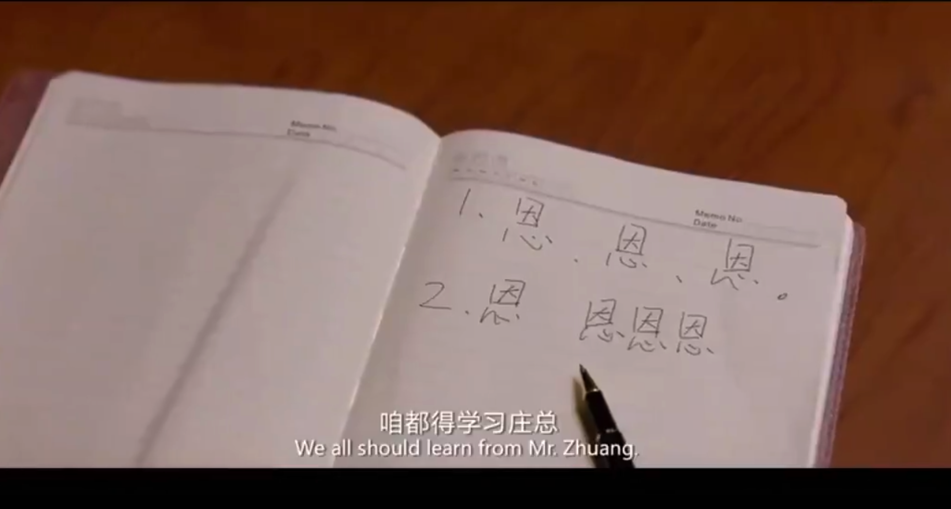 Memo No.
Date
Memo No
Date
1、恩、恩、恩。
2.恩 恩恩恩
咱都得学习庄总
We all should learn from Mr. Zhuang.